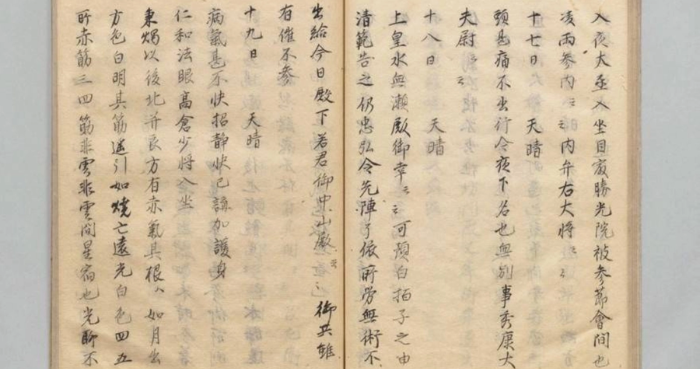 入夜大丞入坐自最勝光院被参節會間也
凌雨参内云々内弁右大将云々
十七日　天晴
頭甚痛不出行今夜下名也無別事秀康大
夫尉云々
十八日　天晴
上皇水無瀬殿御幸云々可預白拍子之由
清範告之仍忠弘令先陣了依所労無術不
出給今日殿下若君御中山殿云々御共雖
有催不参
十九日　天晴
病氣甚不快招静快已講加護身
仁和法眼高倉少将入坐
秉燭以後北并艮方有赤氣其根ハ如月出
方色白明其筋遙引如焼亡遠光白色四五
所赤筋三四筋非雲非雲間星宿也光聊不